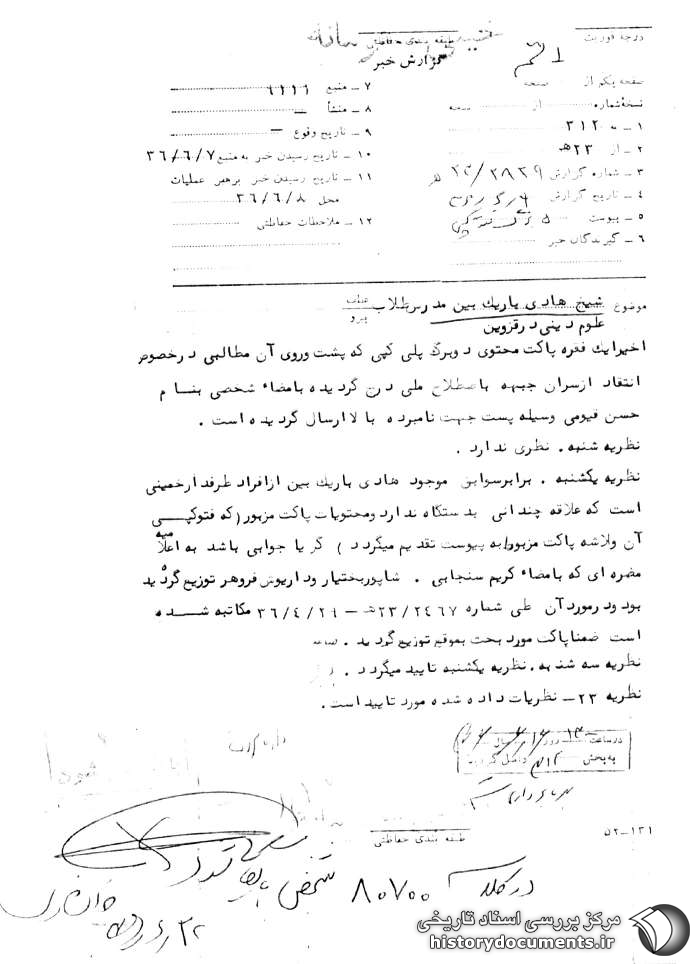 درجه فوریت
طبقه بندی حفاظتی
گزارش خبر
صفحه یکم از صفحه
نسخهٔ شماره از نسخه
۱ – به ۳۱۲
۲ – از ۲۳هـ
۳ – شماره گزارش ۲۳/۲۸۳۹ هـ
۴ – تاریخ گزارش
۵ – پیوست ۵ برگ فتوکپی
۶ – گیرندگان خبر
۷ – منبع ۶۱۱۱
۸ – منشأ –
۹ – تاریخ وقوع –
۱۰ – تاریخ رسیدن خبر به منبع ۳۶/۶/۷
۱۱ – تاریخ رسیدن خبر برهبر عملیات
محل ۳۶/۶/۸
۱۲ – ملاحظات حفاظتی
موضوع شیخ هادی باریك بین مدرس طلاب
علوم دینی در قزوین
عطف
پیرو
اخیرا یك فقره پاکت محتوی دوبرگ پلی کپی که پشت وروی آن مطالبی درخصوص
انتقاد ازسران جبهه باصطلاح ملی درج گردیده بامضاء شخصی بنام
حسن قیومی وسیله پست جهت نامبرده بالا ارسال گردیده است .
نظریه شنبه . نظری ندارد .
نظریه یکشنبه . برابرسوابق موجود هادی باریك بین ازافراد طرفدارخمینی
است که علاقه چندانی بدستگاه ندارد ومحتویات پاکت مزبور(که فتوکپی
آن ولاشه پاکت مزبور)به پیوست تقدیم میگردد ) گریا جوابی باشد به اعلامیه
مضره ای که بامضاء کریم سنجابی . شاپوربختیار وداریوش فروهر توزیع گردیده
بود ودرمورد آن طی شماره ۲۳/۲۴۶۷هـ – ۳۶/۴/۲۹ مکاتبه شده
است ضمنا پاکت مورد بحث بموقع توزیع گردید .
نظریه سه شنبه . نظریه یکشنبه تایید میگردد .
نظریه ۲۳ – نظریات داده شده مورد تایید است .
در ساعت روز سال
به بخش ۳۱۲ واصل گردید
طبقه بندی حفاظتی
۵۲–۱۳۱
در کلاسه ۸۰۷۰۰ شخص
مرکز بررسی اسناد تاریخی
historydocuments.ir